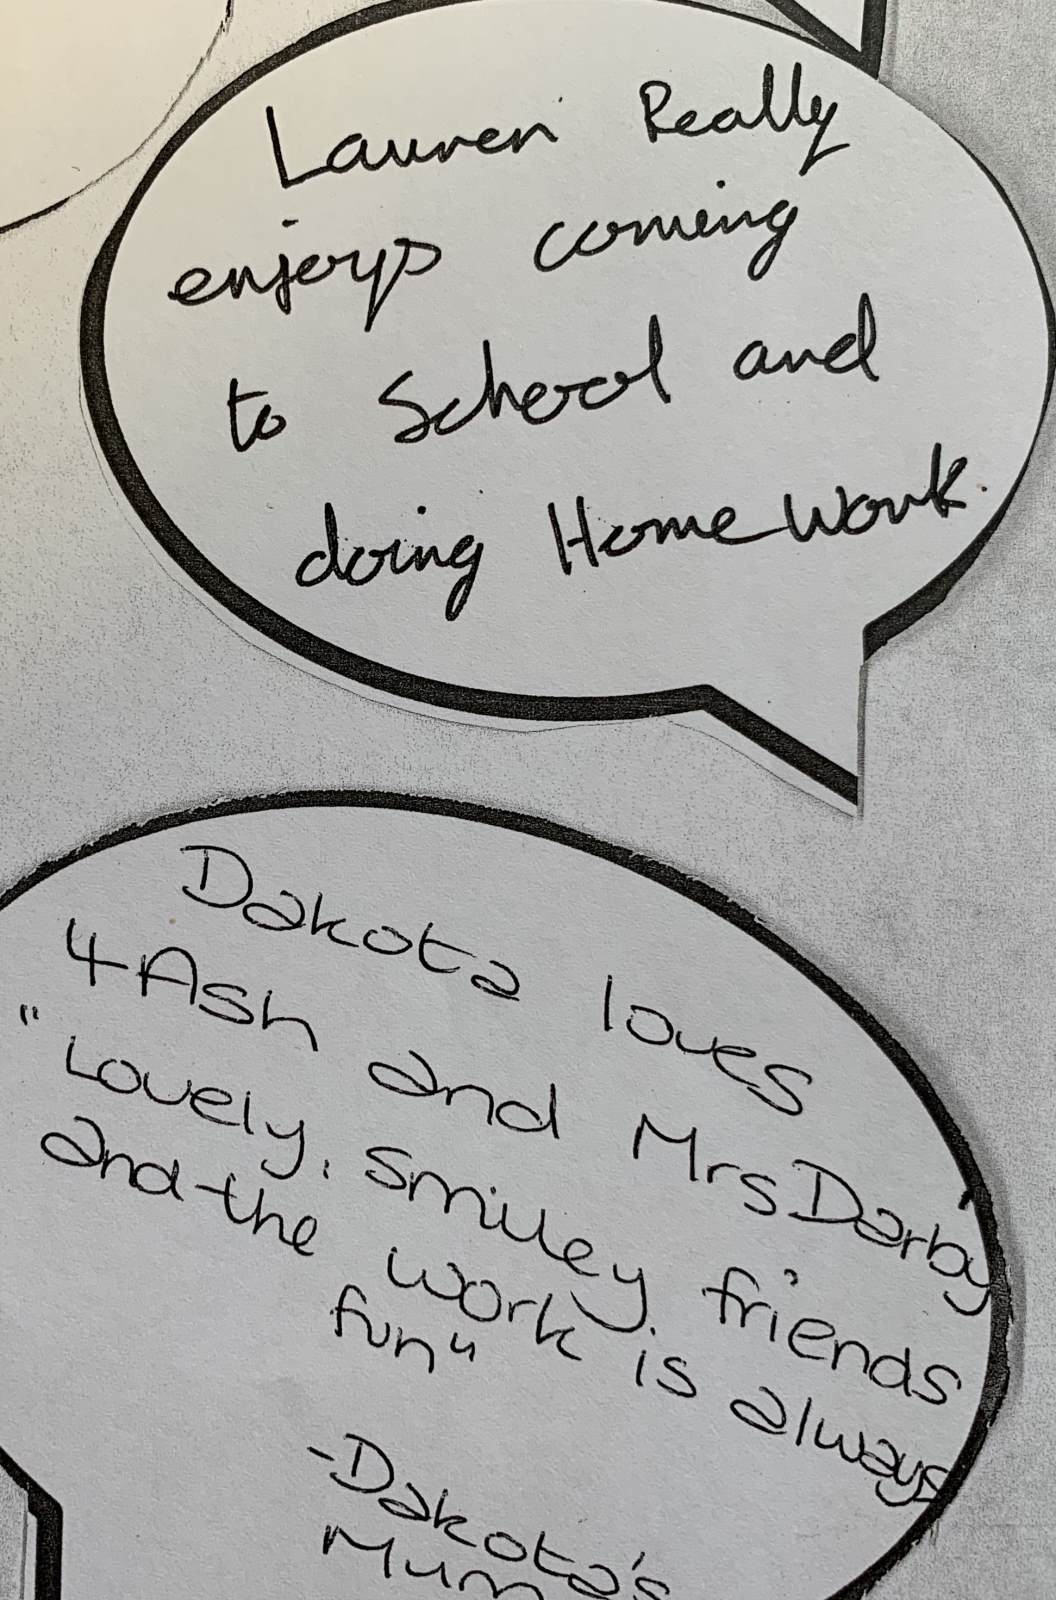 Lauren Really
enjoys coming
to School and
doing Home Work.
Dakota loves
4Ash and Mrs Darby
"Lovely, smiley, friends
and the work is always
fun"
-Dakota's
Mum